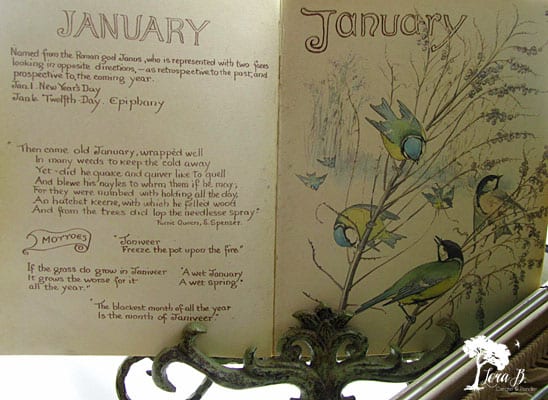 JANUARY
Named from the Roman god Janus, who is represented with two faces
looking in opposite directions, — as retrospective to the past, and
prospective to the coming year.
Jan. 1. New Year's Day
Jan. 6. Twelfth-Day. Epiphany
"Then came old January, wrapped well
In many weeds to keep the cold away
Yet did he quake and quiver like to quell
And blowe his nayles to warm them if he may;
For they were numbed with holding all the day,
An hatchet keene, with which he felled wood
And from the trees did lop the needlesse spray"
Faerie Queen, E. Spenser.
MOTTOES
"Janiveer
Freeze the pot upon the fire."
If the grass do grow in Janiveer
It grows the worse for it
all the year."
"A wet January
A wet spring."
"The blackest month of all the year
Is the month of Janiveer."
January
Tera B.